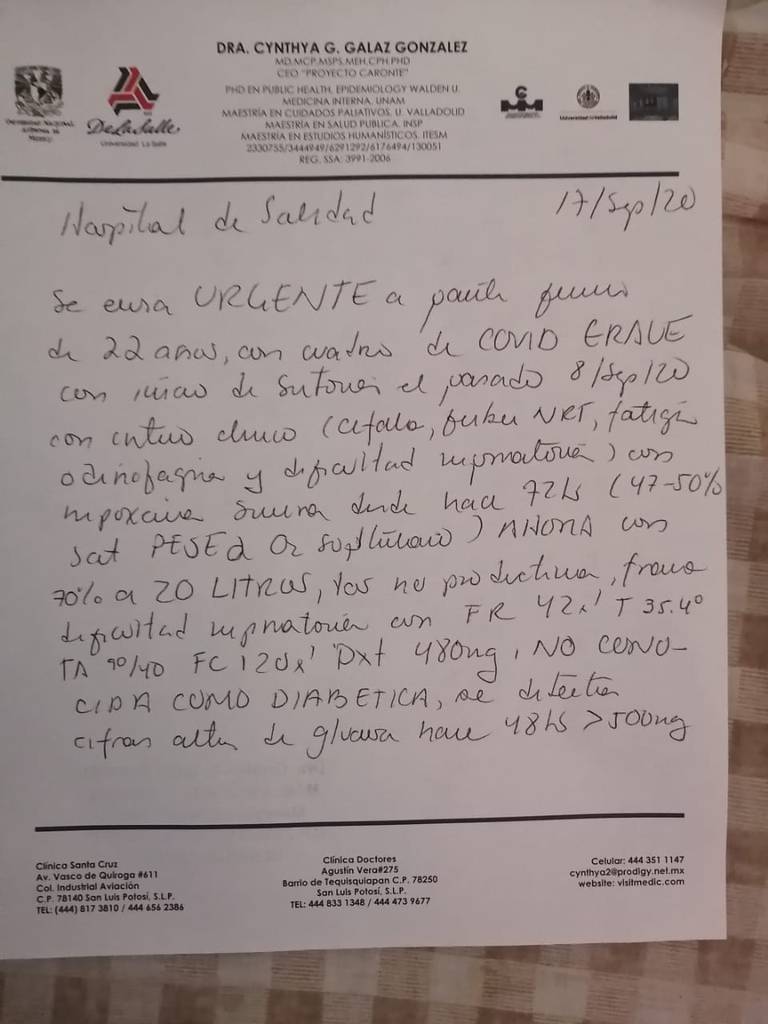 DRA. CYNTHYA G. GALAZ GONZALEZ
MD.MCP.MSPS.MEH.CPH.PHD
CEO "PROYECTO CARONTE"
PHD EN PUBLIC HEALTH, EPIDEMIOLOGY WALDEN U.
MEDICINA INTERNA, UNAM
MAESTRÍA EN CUIDADOS PALIATIVOS, U. VALLADOLID
MAESTRIA EN SALUD PUBLICA, INSP
MAESTRIA EN ESTUDIOS HUMANÍSTICOS, ITESM
2330755/3444949/6291292/6176494/130051
REG. SSA: 3991-2006
UNIVERSIDAD NACIONAL
AUTÓNOMA DE
MÉXICO
De La Salle
Universidad La Salle
Universidad de Valladolid
Hospital de Salidad 17/Sep/20
Se envia URGENTE a
de 22 años, con cuadro de COVID GRAVE
con inicio de Sintomas el pasado 8/Sep/20
con clinico (cefalea, fiebre NRT, fatiga
odinofagia y dificultad respiratoria) con
hipoxemia severa desde hace 72hs (47-50%
sat PESE a O2 suplementario) AHORA con
70% a 20 LITROS, tos no productiva, franca
dificultad respiratoria con FR 42x' T 35.4°
TA 90/40 FC 120x' Dxt 480mg, NO CONO-
CIDA COMO DIABETICA, se detectan
cifras altas de glucosa hace 48hs >500mg
Clínica Santa Cruz
Av. Vasco de Quiroga #611
Col. Industrial Aviación
C.P. 78140 San Luis Potosí, S.L.P.
TEL: (444) 817 3810 / 444 656 2386
Clínica Doctores
Agustín Vera#275
Barrio de Tequisquiapan C.P. 78250
San Luis Potosí, S.L.P.
TEL: 444 833 1348 / 444 473 9677
Celular: 444 351 1147
cynthya2@prodigy.net.mx
website: visitmedic.com